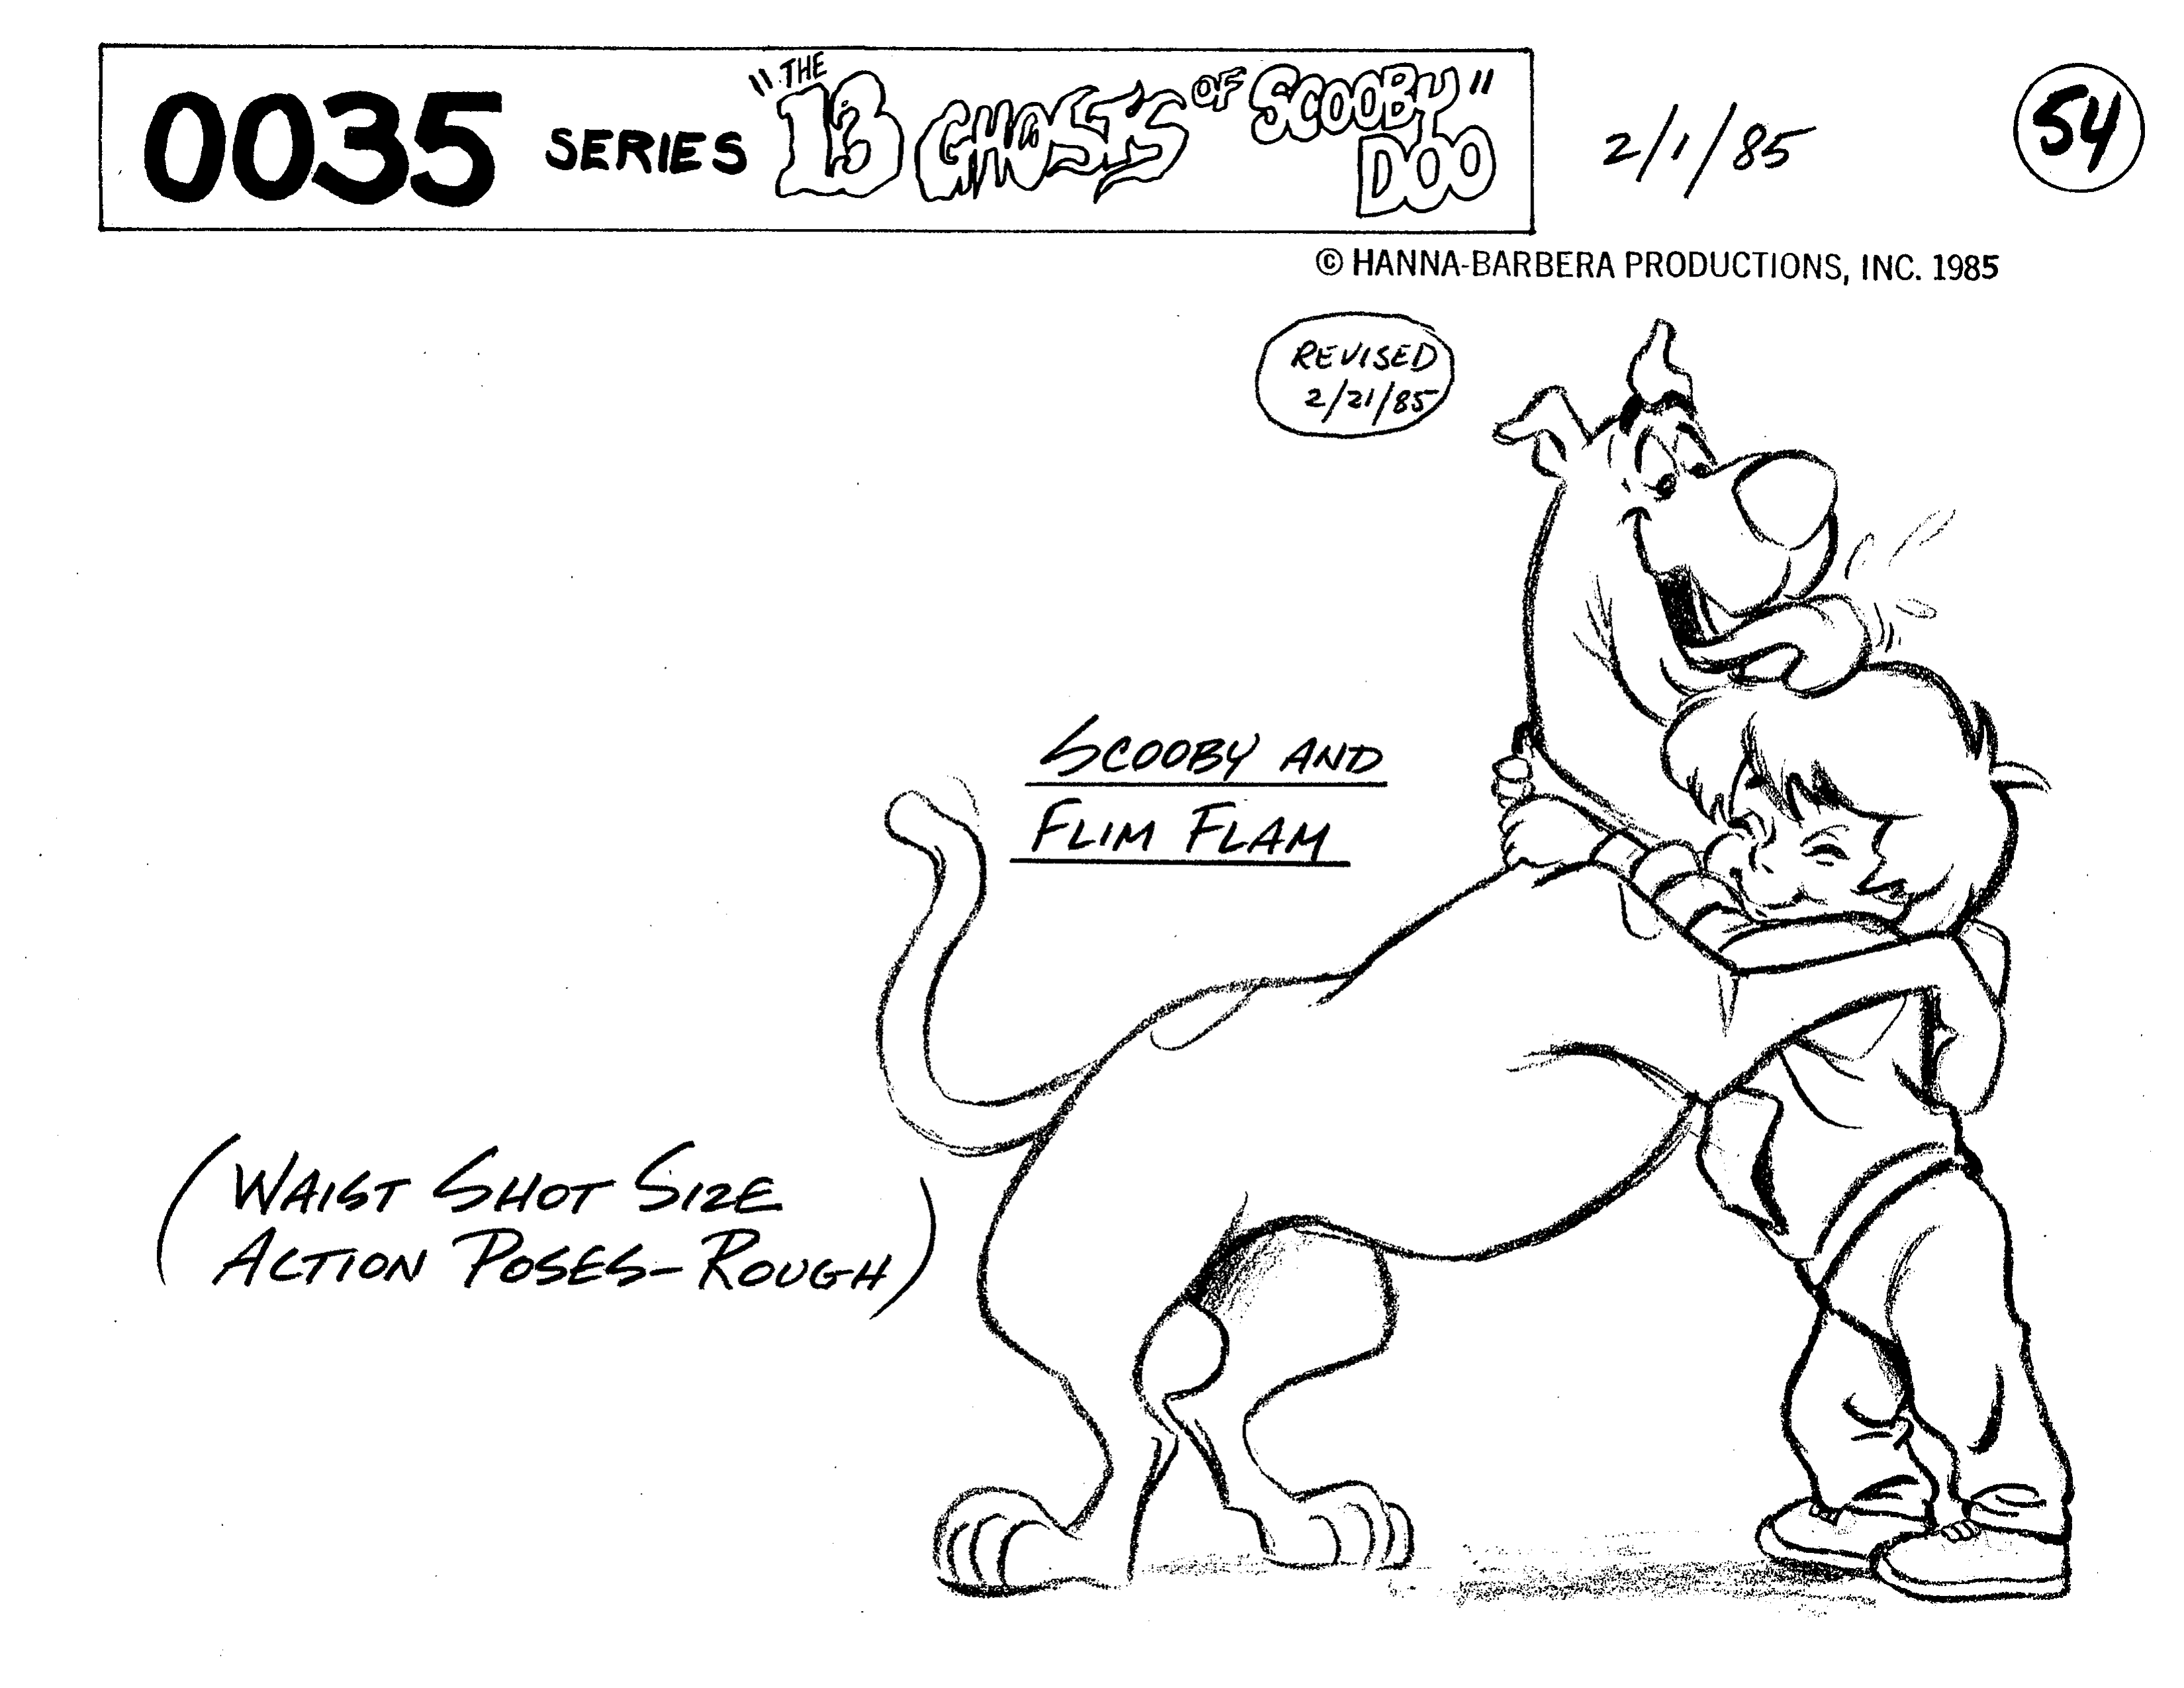 0035 SERIES "THE 13 GHOSTS OF SCOOBY DOO" 2/1/85 54
© HANNA-BARBERA PRODUCTIONS, INC. 1985
REVISED
2/21/85
SCOOBY AND
FLIM FLAM
(WAIST SHOT SIZE
ACTION POSES-ROUGH)